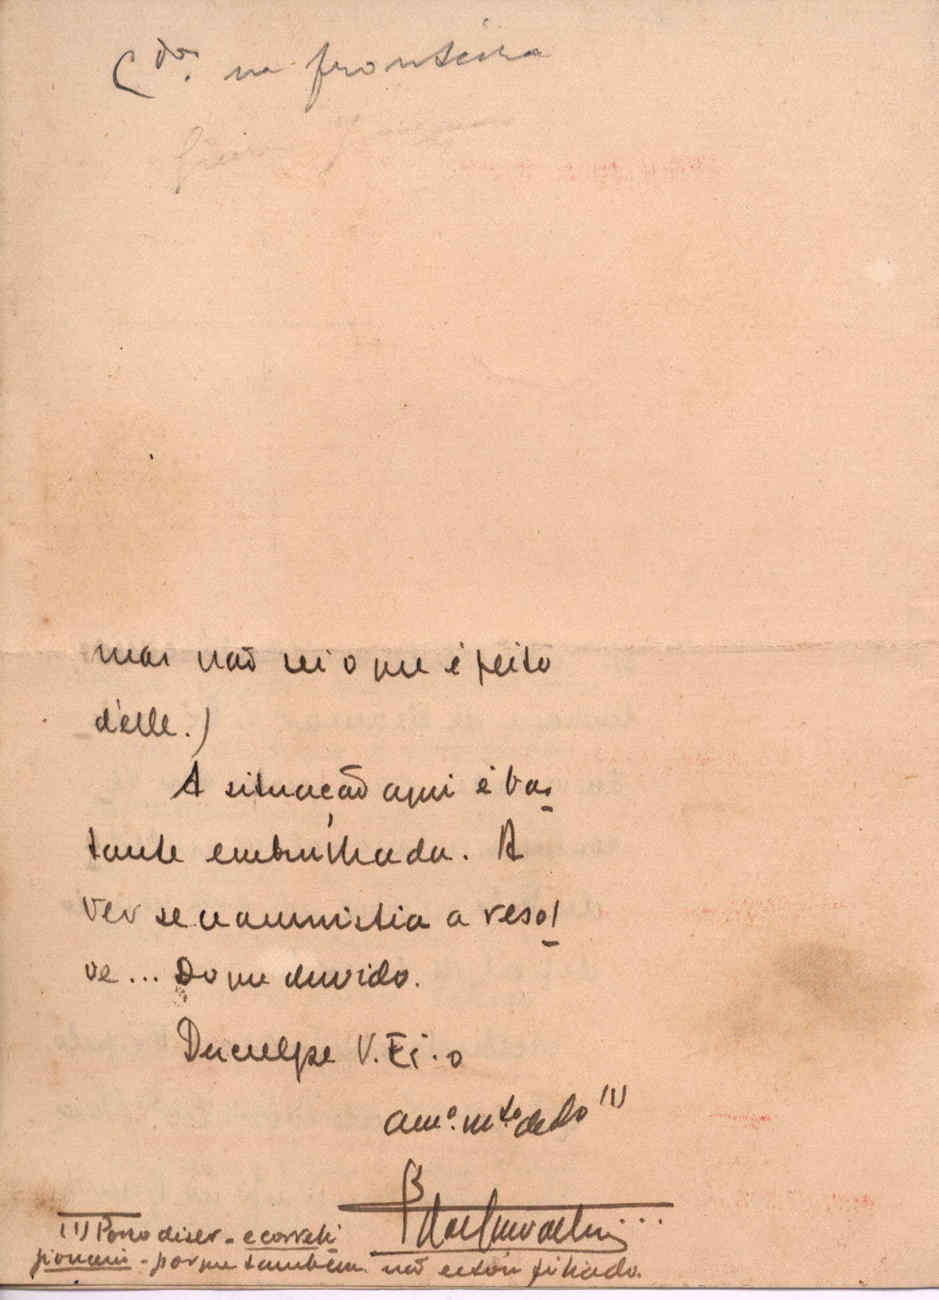 C.do na fronteira
mas não sei o que é feito
d'elle.)
A situação aqui é bas
tante embrulhada. A
ver se a amnistia a resol
ve... Do que duvido.
Desculpe V. Ex. o
am.º m.to ded.o (1)
(1) Posso dizer - e correli
gionario - porque também não estou filiado.